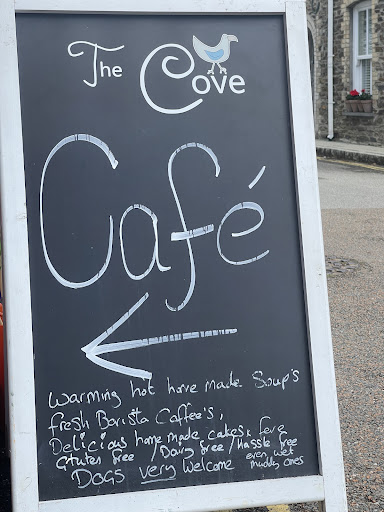 The Cove
Café
warming hot home made Soup's
fresh Barista Coffee's,
Delicious home made cakes,
Gluten free / Dairy free / Hassle free
Dogs very welcome even wet
muddy ones